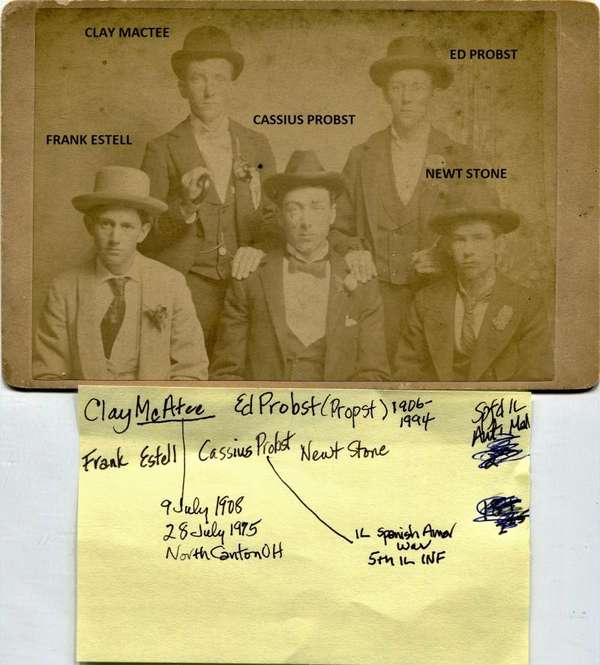 CLAY MACTEE
ED PROBST
CASSIUS PROBST
FRANK ESTELL
NEWT STONE
Clay McAtee Ed Probst (Propst) 1906-1994
Sold IL
Frank Estell Cassius Probst Newt Stone
9 July 1908
28 July 1975
North Canton OH
IL Spanish Amer
War
5th IL INF